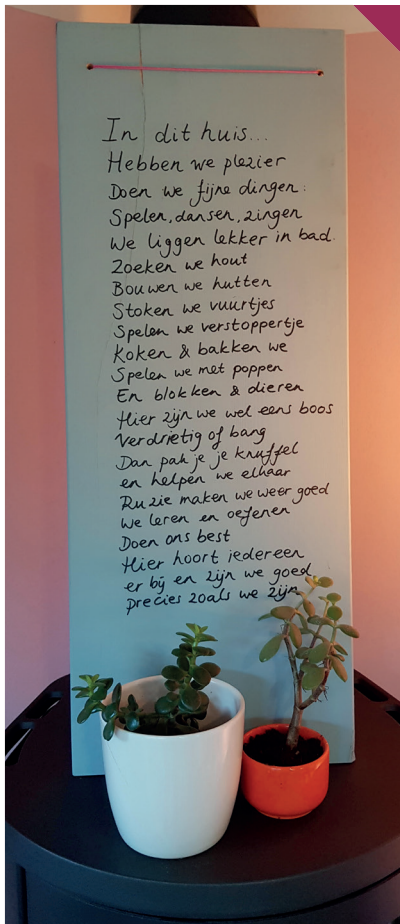 In dit huis...
Hebben we plezier
Doen we fijne dingen:
Spelen, dansen, zingen
We liggen lekker in bad.
Zoeken we hout
Bouwen we hutten
Stoken we vuurtjes
Spelen we verstoppertje
Koken & bakken we
Spelen we met poppen
En blokken & dieren
Hier zijn we wel eens boos
Verdrietig of bang
Dan pak je je knuffel
en helpen we elkaar
Ruzie maken we weer goed
We leren en oefenen
Doen ons best
Hier hoort iedereen
er bij en zijn we goed
precies zoals we zijn